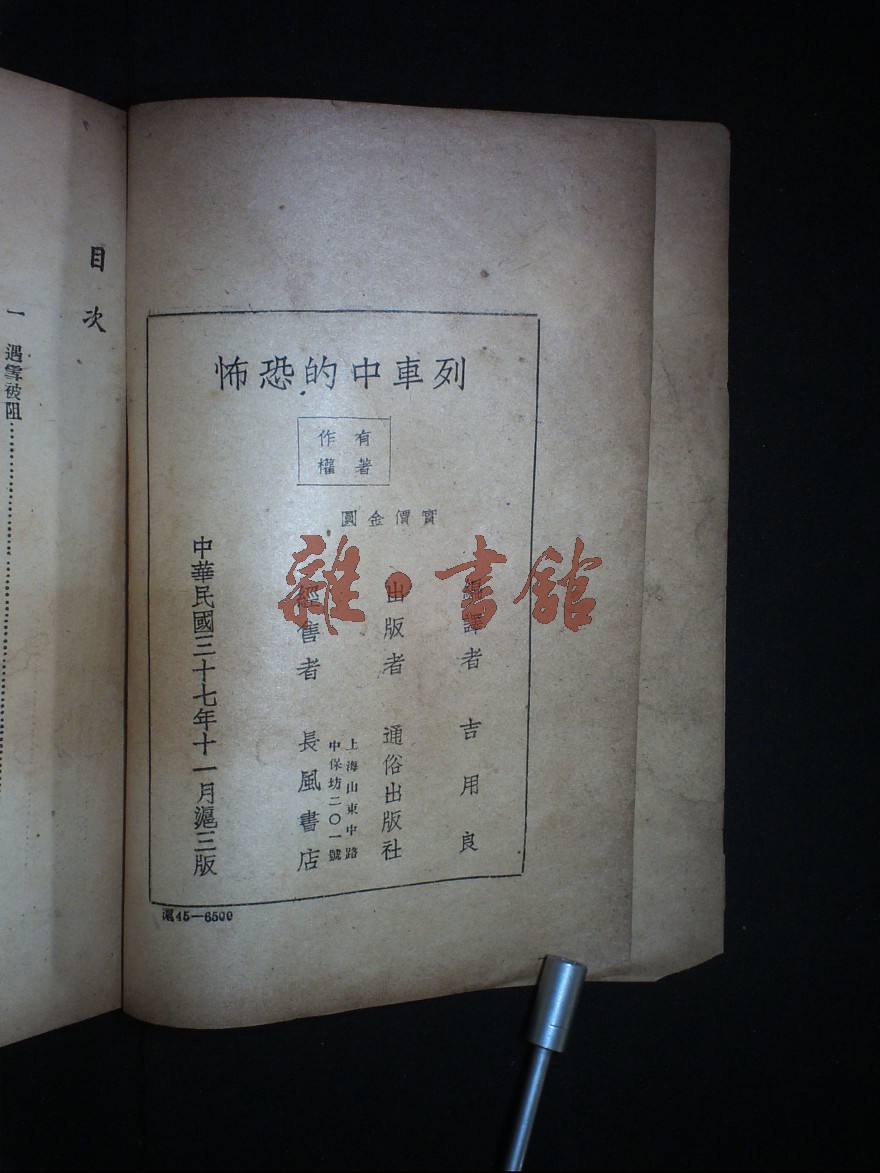 列車中的恐怖
有著
作權
實價金圓
編譯者 吉用良
出版者 通俗出版社
上海山東中路
中保坊二〇一號
經售者 長風書店
中華民國三十七年十一月滬三版
滬45—6500
雜·書館
目次
一 遇雪被阻